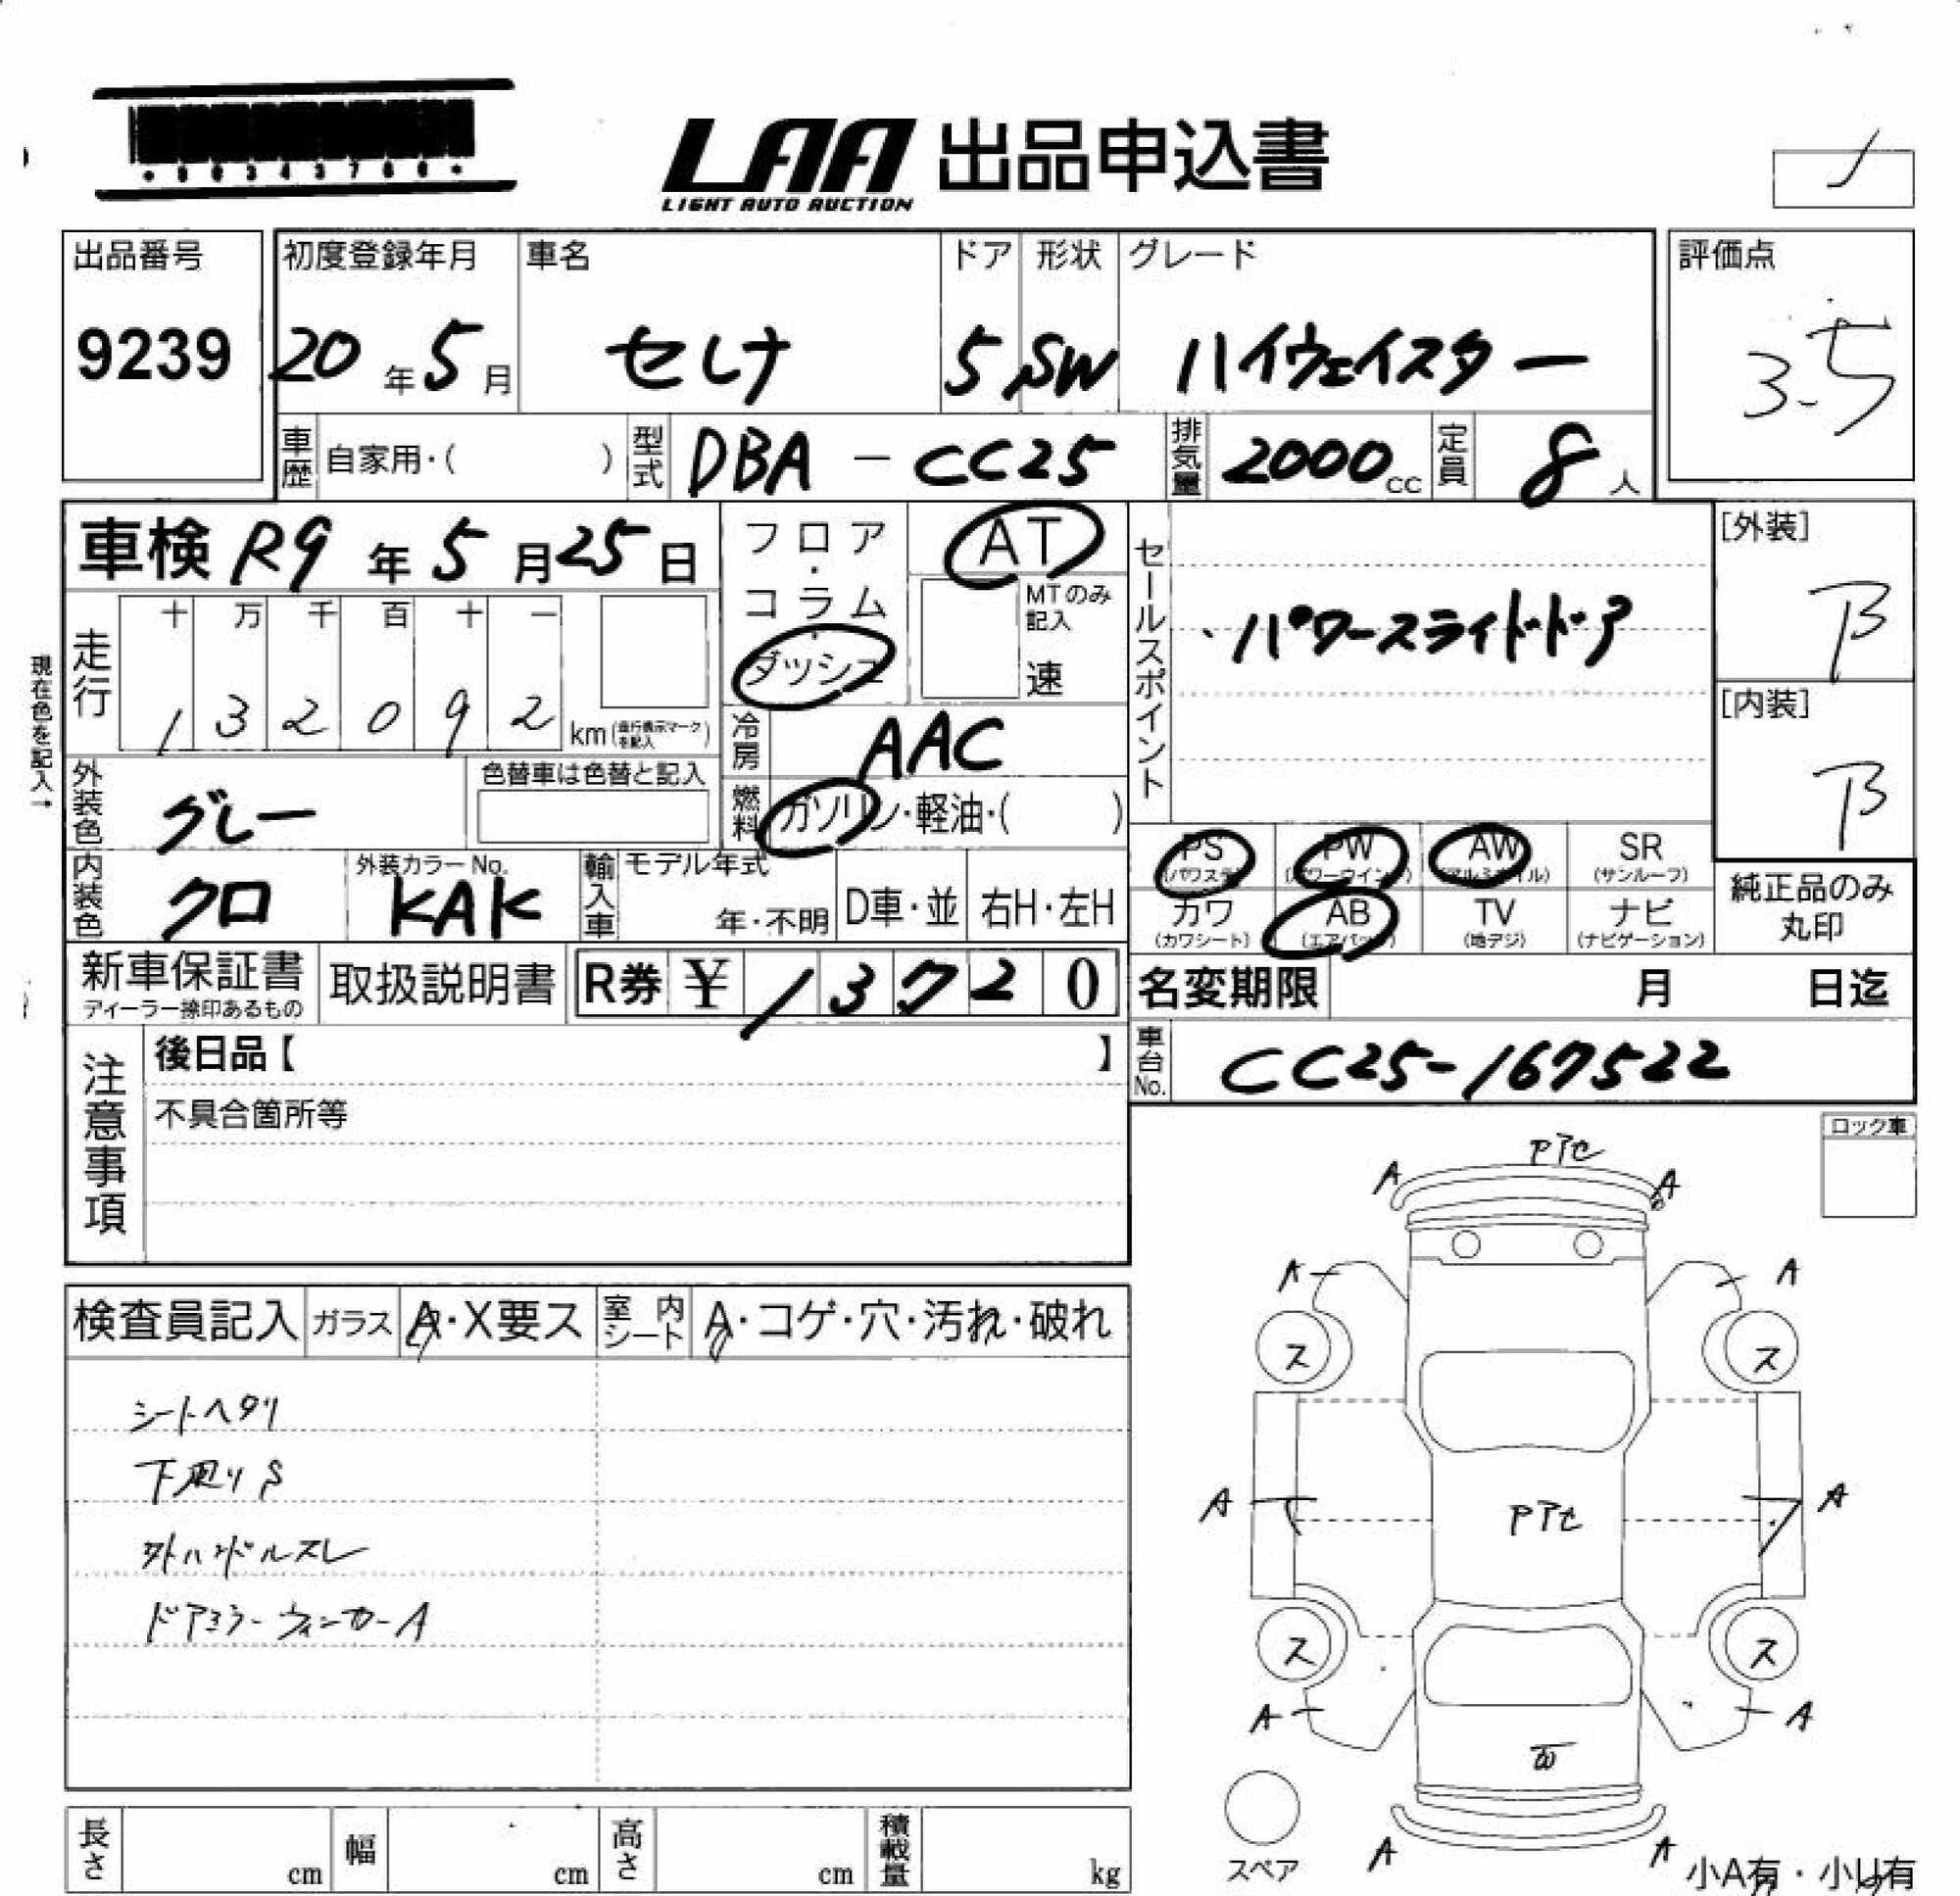 LAA 出品申込書
LIGHT AUTO AUCTION
出品番号
9239
初度登録年月
20年5月
車名
セレナ
ドア
5
形状
SW
グレード
ハイウェイスター
評価点
3.5
車歴 自家用・( )
型式 DBA-CC25
排気量 2000cc
定員 8人
車検 R9年5月25日
フロア・コラム・ダッシュ
AT
MTのみ記入
速
セールスポイント
・パワースライドドア
[外装]
B
[内装]
B
現在色を記入→
走行
十 万 千 百 十 一
1 3 2 0 9 2
km(走行表示マークを記入)
冷房 AAC
外装色 グレー
色替車は色替と記入
燃料 ガソリン・軽油・( )
内装色 クロ
外装カラーNo.
KAK
輸入車
モデル年式
年・不明
D車・並
右H・左H
PS (パワステ)
PW (パワーウインド)
AW (アルミホイル)
SR (サンルーフ)
カワ (カワシート)
AB (エアバッグ)
TV (地デジ)
ナビ (ナビゲーション)
純正品のみ丸印
新車保証書
ディーラー捺印あるもの
取扱説明書
R券 ¥ 13720
名変期限 月 日迄
車台No. CC25-167522
注意事項
後日品【 】
不具合箇所等
ロック車
検査員記入
ガラス A・X要ス
室内シート A・コゲ・穴・汚れ・破れ
シートヘタリ
下廻りS
外ハンドルスレ
ドアミラーウィンカーA
Pアセ
A A
A A
ス ス
A A
Pアセ
ス ス
A A
A A
スペア
小A有・小U有
長さ cm
幅 cm
高さ cm
積載量 kg